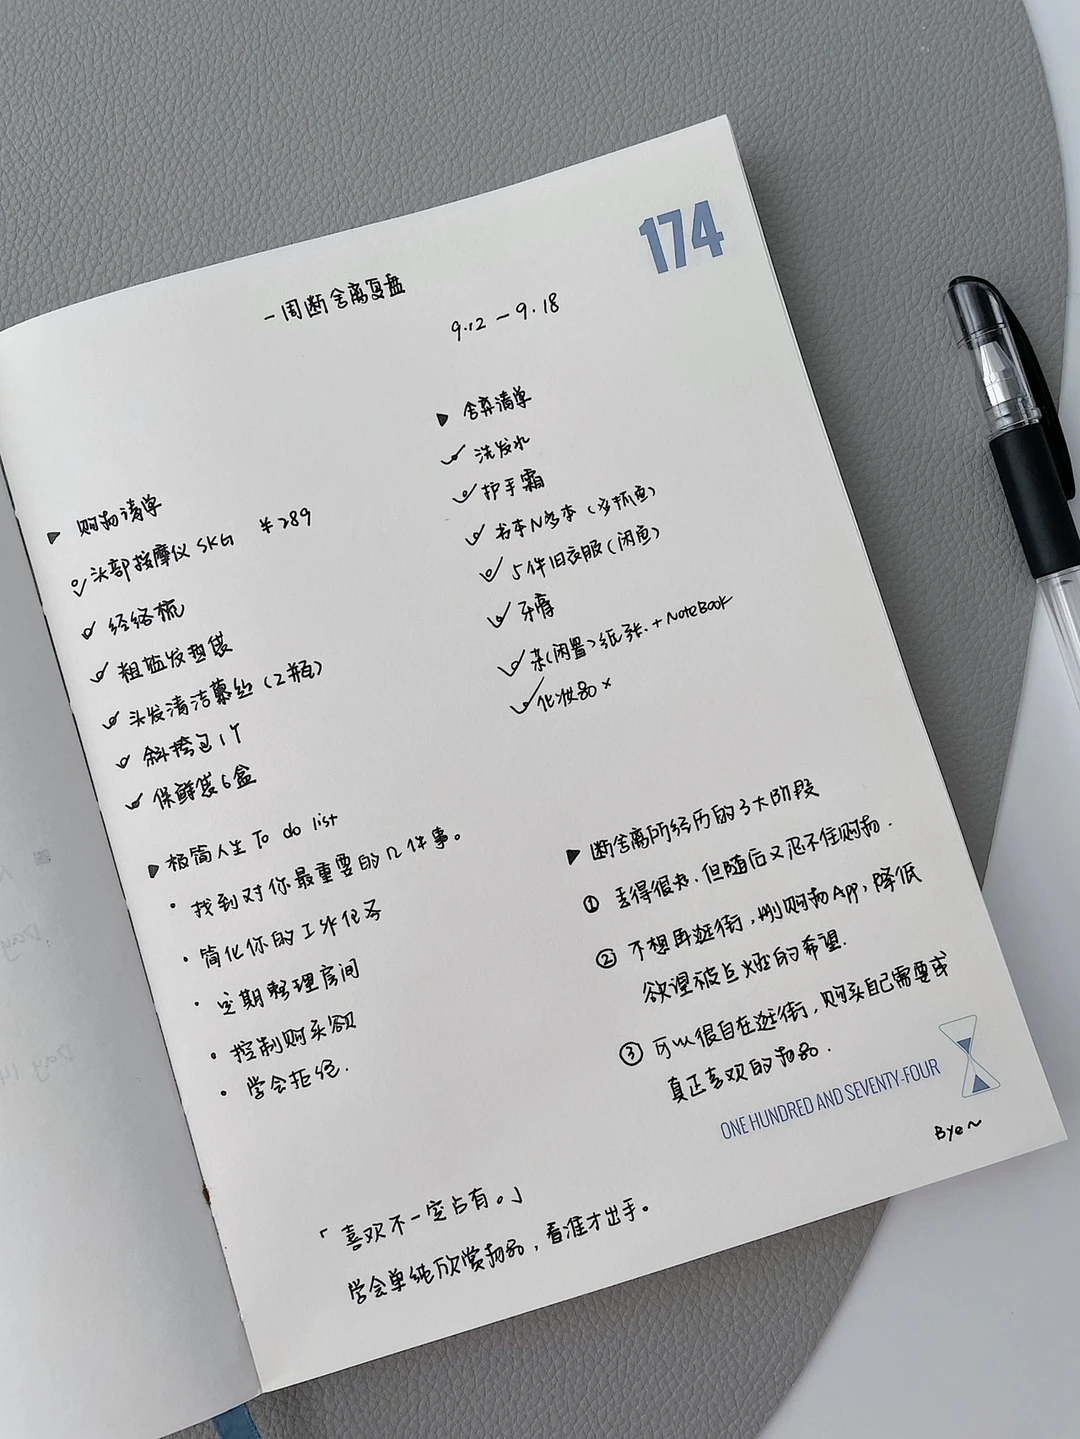 174
一周断舍离复盘
9.12 - 9.18
▶ 购物清单
头部按摩仪 SKG ¥289
经络梳
粗盐发热袋
头发清洁慕丝(2瓶)
斜挎包1个
保鲜袋6盒
▶ 舍弃清单
洗发水
护手霜
书本N多本(多抓鱼)
5件旧衣服(闲鱼)
牙膏
杂(闲置)纸张.+NoteBook
化妆品×
▶ 极简人生 To do list
· 找到对你最重要的几件事。
· 简化你的工作任务
· 定期整理房间
· 控制购买欲
· 学会拒绝.
▶ 断舍离所经历的3大阶段
① 丢得很兴.但随后又忍不住购物.
② 不想再逛街,删购物App,降低
欲望被点燃的希望.
③ 可以很自在逛街,购买自己需要或
真正喜欢的物品.
ONE HUNDRED AND SEVENTY-FOUR
Bye~
「喜欢不一定占有。」
学会单纯欣赏物品,看准才出手。